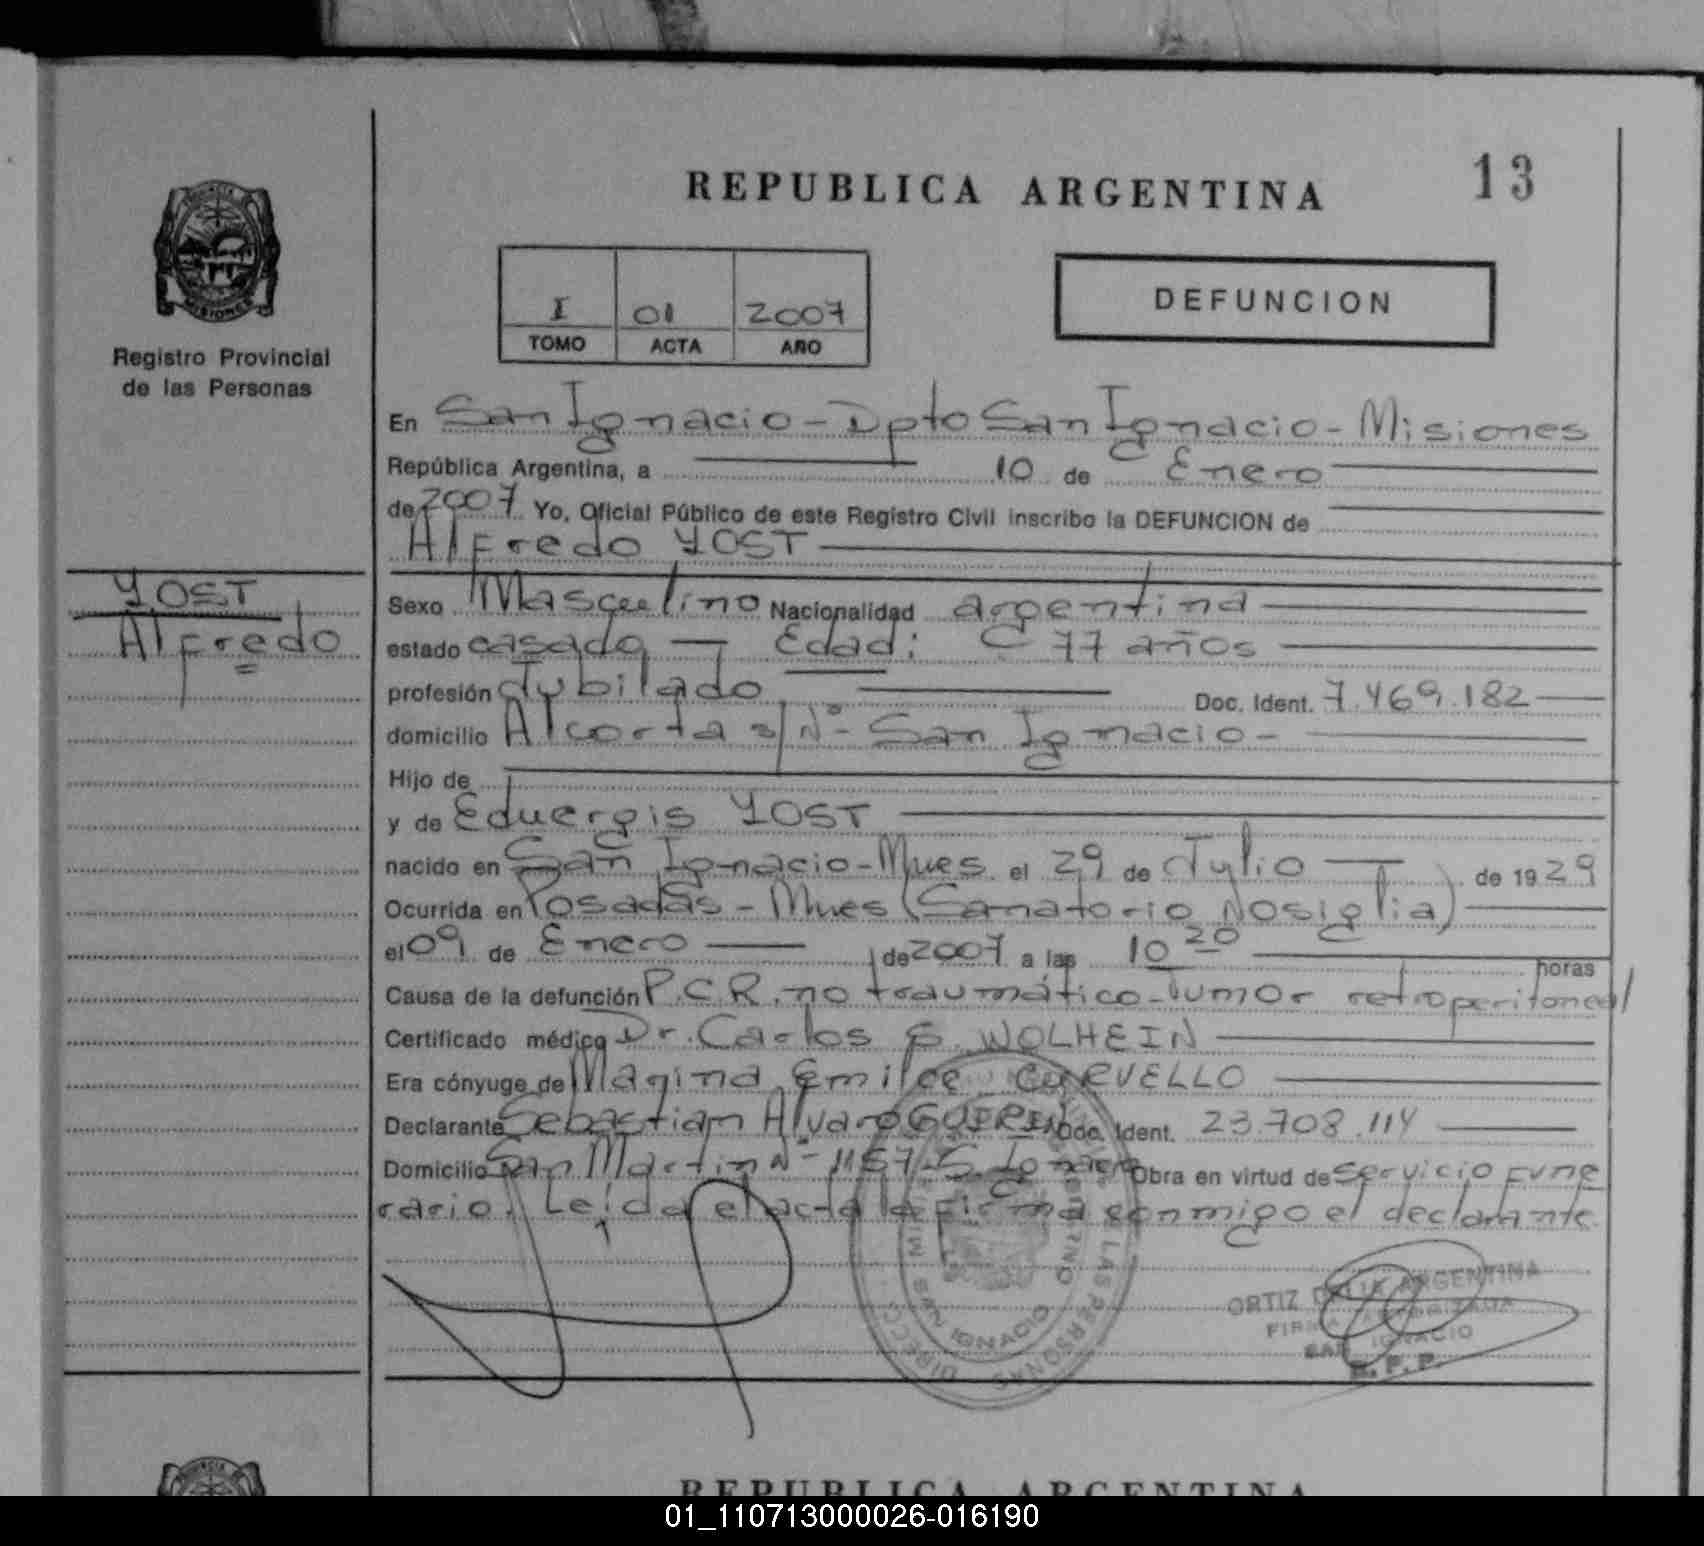 REPUBLICA ARGENTINA
13
PROVINCIA DE
MISIONES
Registro Provincial
de las Personas
I 01 2007
TOMO ACTA AÑO
DEFUNCION
En San Ignacio - Dpto San Ignacio - Misiones
República Argentina, a 10 de Enero
de 2007 Yo, Oficial Público de este Registro Civil inscribo la DEFUNCION de
Alfredo YOST
YOST
Alfredo
Sexo Masculino Nacionalidad argentina
estado casado Edad: 77 años
profesión Jubilado Doc. Ident. 7.469.182
domicilio Alcorta s/Nº - San Ignacio -
Hijo de
y de Eduergis YOST
nacido en San Ignacio - Mnes el 29 de Julio de 1929
Ocurrida en Posadas - Mnes (Sanatorio Nosiglia)
el 09 de Enero de 2007 a las 10 20 horas
Causa de la defunción P.C.R. no traumático - Tumor retroperitoneal
Certificado médico Dr. Carlos WOLHEIN
Era cónyuge de Magina Emilce CURVELLO
Declarante Sebastian Alvaro GUERIN Doc. Ident. 23.708.114
Domicilio San Martin Nº 1157 - S. Ignacio Obra en virtud de servicio fune
rario. Leída el acta la firma conmigo el declarante.
SAN IGNACIO
LAS PERSONAS
ORTIZ ARGENTINA
FIRMA AUTORIZADA
SAN IGNACIO
R. P. P.
REPUBLICA ARGENTINA
01_110713000026-016190